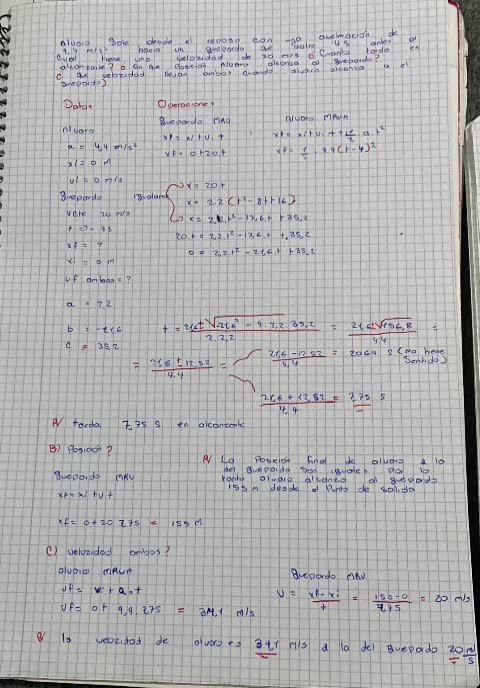 Alvaro Sale desde el reposo con una aceleración de
4,4 m/s² hacia un guepardo que salio 4s antes el
cual tiene una velocidad de 20 m/s a) Cuanto tarda en
alcanzarle? B en que Posición Alvaro alcanza al guepardo?
C que velozidad llevan ambos cuando alvaro alcanza a el
guepardo)
Datos Operaciones
Alvaro Guepardo MRU Alvaro MRUA
a = 4,4 m/s² xf = xi + vi . t xf = xi + vi . t + 1/2 a . t²
xi = 0 M xf = 0 + 20 . t xf = 1/2 . 4.4 (t - 4)²
vi = 0 m/s
Guepardo igualan x = 20 . t
x = 2.2 (t² - 8t + 16)
vcte 20 m/s x = 2,2 t² - 17,6 t + 35,2
t = - 4s 20 . t = 2,2 t² - 17,6 t + 35,2
xf = ? 0 = 2,2 t² - 21,6 t + 35,2
xi = 0 M
vf ambos = ?
a = 2,2
b = -21,6 t = 21,6 ± √-21,6² - 4 . 2,2 . 35,2 / 2 . 2,2 = 21,6 ± √156,8 / 4,4 =
c = 35,2
= 21,6 ± 12,52 / 4,4 = 21,6 - 12,52 / 4,4 = 2064 s (No tiene
Sentido)
21,6 + 12,52 / 4,4 = 7,75 s
R/ tarda 7,75 s en alcanzarle
B) Posicion? R/ La Posición final de alvaro a la
del guepardo son iguales por lo
Guepardo MRU tanto alvaro alcanza al guepardo
xf = xi + v . t 155 m desde el Punto de salida
xf = 0 + 20 . 7,75 = 155 M
C) velozidad ambos?
alvaro MRUA Guepardo MRU
vf = vi + a . t v = xf - xi / t = 155 - 0 / 7,75 = 20 m/s
vf = 0 + 4,4 . 7,75 = 34,1 m/s
R/ la velozidad de alvaro es 34,1 m/s a la del guepardo 20 m/s